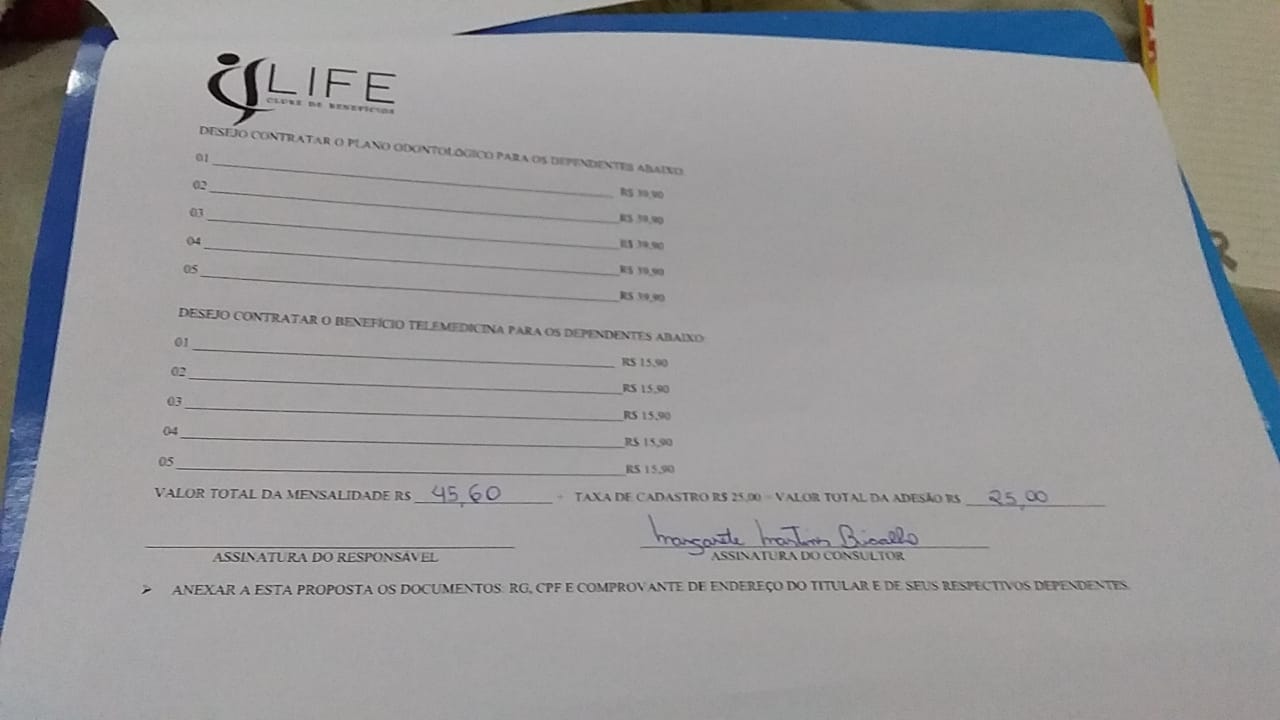 LIFE
CLUBE DE BENEFÍCIOS
DESEJO CONTRATAR O PLANO ODONTOLÓGICO PARA OS DEPENDENTES ABAIXO:
01 R$ 39,90
02 R$ 39,90
03 R$ 39,90
04 R$ 39,90
05 R$ 39,90
DESEJO CONTRATAR O BENEFÍCIO TELEMEDICINA PARA OS DEPENDENTES ABAIXO:
01 R$ 15,90
02 R$ 15,90
03 R$ 15,90
04 R$ 15,90
05 R$ 15,90
VALOR TOTAL DA MENSALIDADE R$ 45,60 + TAXA DE CADASTRO R$ 25,00 = VALOR TOTAL DA ADESÃO R$ 25,00
Margarete Martins
ASSINATURA DO RESPONSÁVEL ASSINATURA DO CONSULTOR
➢ ANEXAR A ESTA PROPOSTA OS DOCUMENTOS: RG, CPF E COMPROVANTE DE ENDEREÇO DO TITULAR E DE SEUS RESPECTIVOS DEPENDENTES.